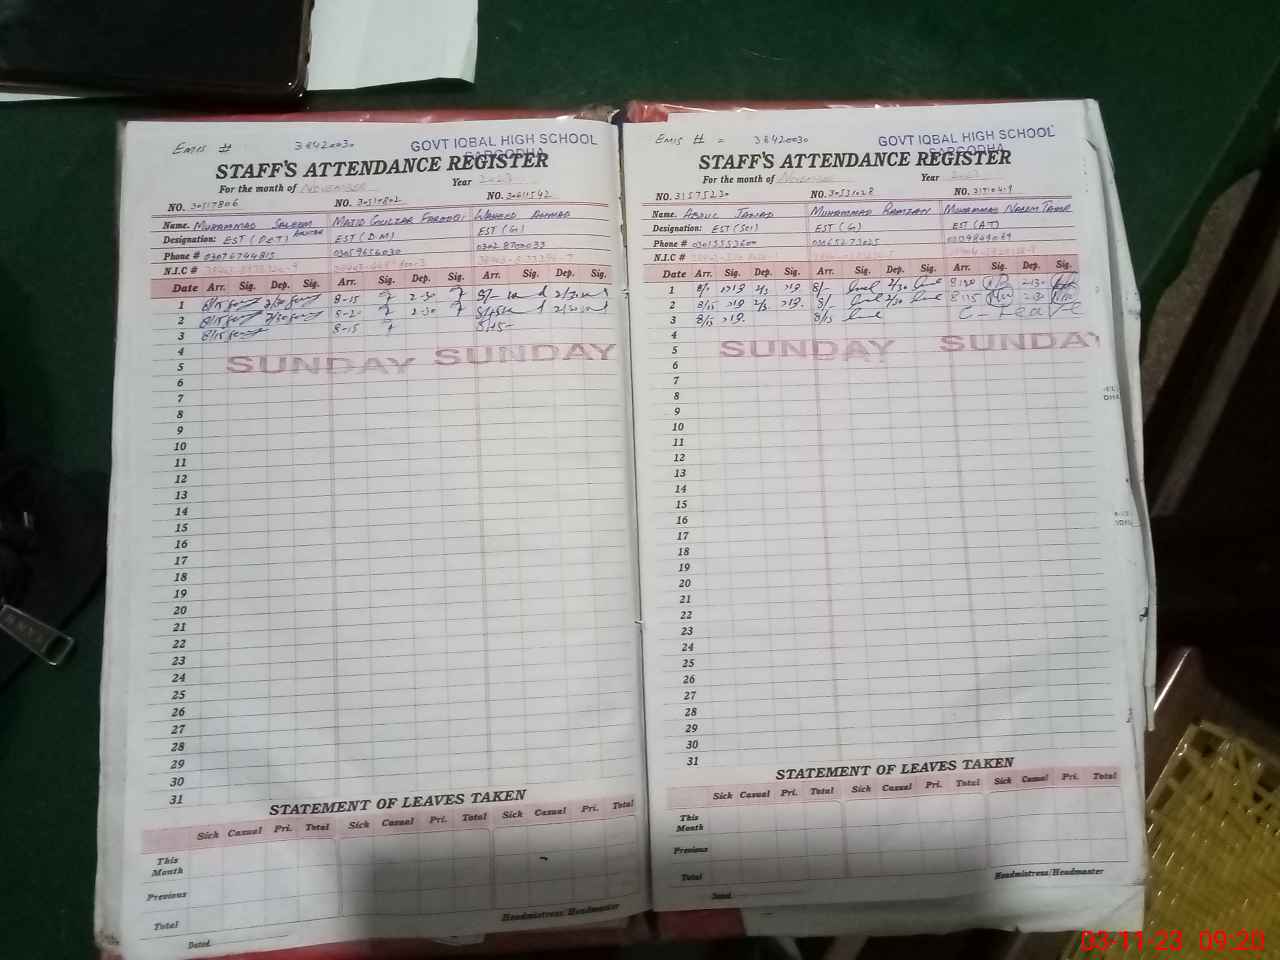 EMIS # 38420030
GOVT IQBAL HIGH SCHOOL
SARGODHA
STAFF'S ATTENDANCE REGISTER
For the month of NOVEMBER Year 2023
NO. 30517806 NO. 30517802 NO. 30611542
Name. MUHAMMAD SALEEM AKHTAR MAJID GULZAR FAROOQI WAHEED AHMAD
Designation: EST (PET) EST (D.M) EST (G)
Phone # 03076744815 03059656030 0302 8700033
N.I.C #
Date Arr. Sig. Dep. Sig. Arr. Sig. Dep. Sig. Arr. Sig. Dep. Sig.
1 8/15 2/30 8-15 2-30 8/- 2/30
2 8/15 2/30 8-20 2-30 8/15 2/30
3 8/15 8-15 8/15-
4
5 SUNDAY SUNDAY
6
7
8
9
10
11
12
13
14
15
16
17
18
19
20
21
22
23
24
25
26
27
28
29
30
31
STATEMENT OF LEAVES TAKEN
Sick Casual Pri. Total Sick Casual Pri. Total Sick Casual Pri. Total
This Month
Previous
Total
Headmistress/Headmaster
Dated.
EMIS # = 38420030
GOVT IQBAL HIGH SCHOOL
SARGODHA
STAFF'S ATTENDANCE REGISTER
For the month of November Year 2023
NO. 31575230 NO. 30531028 NO.
Name. ABDUL JAWAD MUHAMMAD RAMZAN MUHAMMAD NAEEM TAHIR
Designation: EST (Sci) EST (G) EST (AT)
Phone # 03013553600 03065273025
N.I.C #
Date Arr. Sig. Dep. Sig. Arr. Sig. Dep. Sig. Arr. Sig. Dep. Sig.
1 8/- 2/30 8:00 2-30
2 8/15 8/- 2/30 8:15 2-30
3 8/15 8/15 C - Leave
4
5 SUNDAY SUNDAY
6
7
8
9
10
11
12
13
14
15
16
17
18
19
20
21
22
23
24
25
26
27
28
29
30
31
STATEMENT OF LEAVES TAKEN
Sick Casual Pri. Total Sick Casual Pri. Total Sick Casual Pri. Total
This Month
Previous
Total
Headmistress/Headmaster
Dated.
03-11-23 09:20